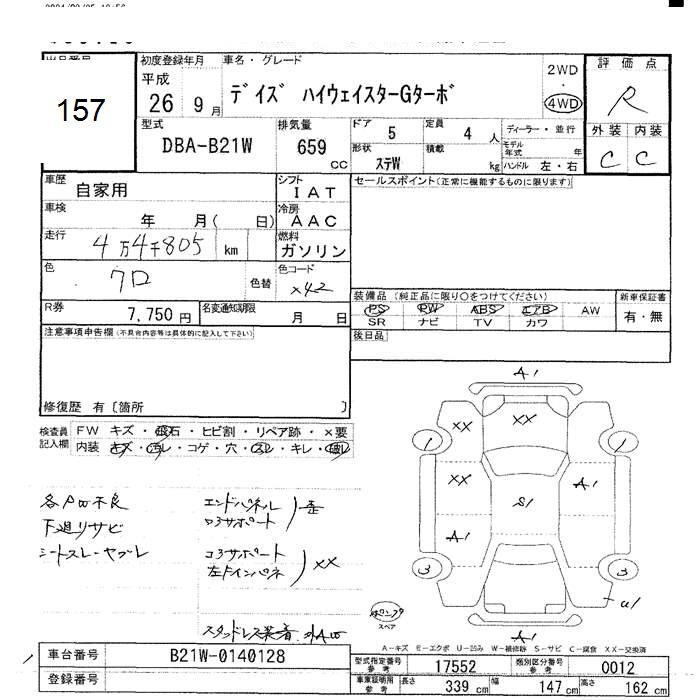 157
初度登録年月
平成
26 9月
車名・グレード
デイズ ハイウェイスターGターボ
2WD
・
4WD
評価点
R
外装 内装
C C
型式
DBA-B21W
排気量
659
cc
ドア 5
定員 4 人
形状 ステW
積載 kg
ディーラー・並行
モデル年式 年
ハンドル 左・右
車歴 自家用
シフト IAT
セールスポイント(正常に機能するものに限ります)
車検 年 月( 日)
冷房 AAC
走行 4万4千805 km
燃料 ガソリン
色 クロ 色替
色コード X42
R券 7,750円
名変通知期限 月 日
装備品 (純正品に限り○をつけてください)
PS PW ABS エアB AW
SR ナビ TV カワ
新車保証書
有・無
注意事項申告欄(不具合内容等は具体的に記入して下さい)
後日品
修復歴 有〔箇所 〕
検査員記入欄
FW キズ・飛石・ヒビ割・リペア跡・×要
内装 キズ・汚レ・コゲ・穴・スレ・キレ・破レ
下廻リサビ
シートスレ・ヤブレ
エンドパネル
ロアサポート
コアサポート
左ドインパネ
XX
スタッドレス装着
A1
XX XX
1 1
XX
S1
A1
A1
3 3
U1
A1
スペア
A-キズ E-エクボ U-凹み W-補修跡 S-サビ C-腐食 XX-交換済
車台番号 B21W-0140128
登録番号
型式指定番号 参考 17552
類別区分番号 参考 0012
車庫証明用 参考 長さ 339 cm 幅 147 cm 高さ 162 cm